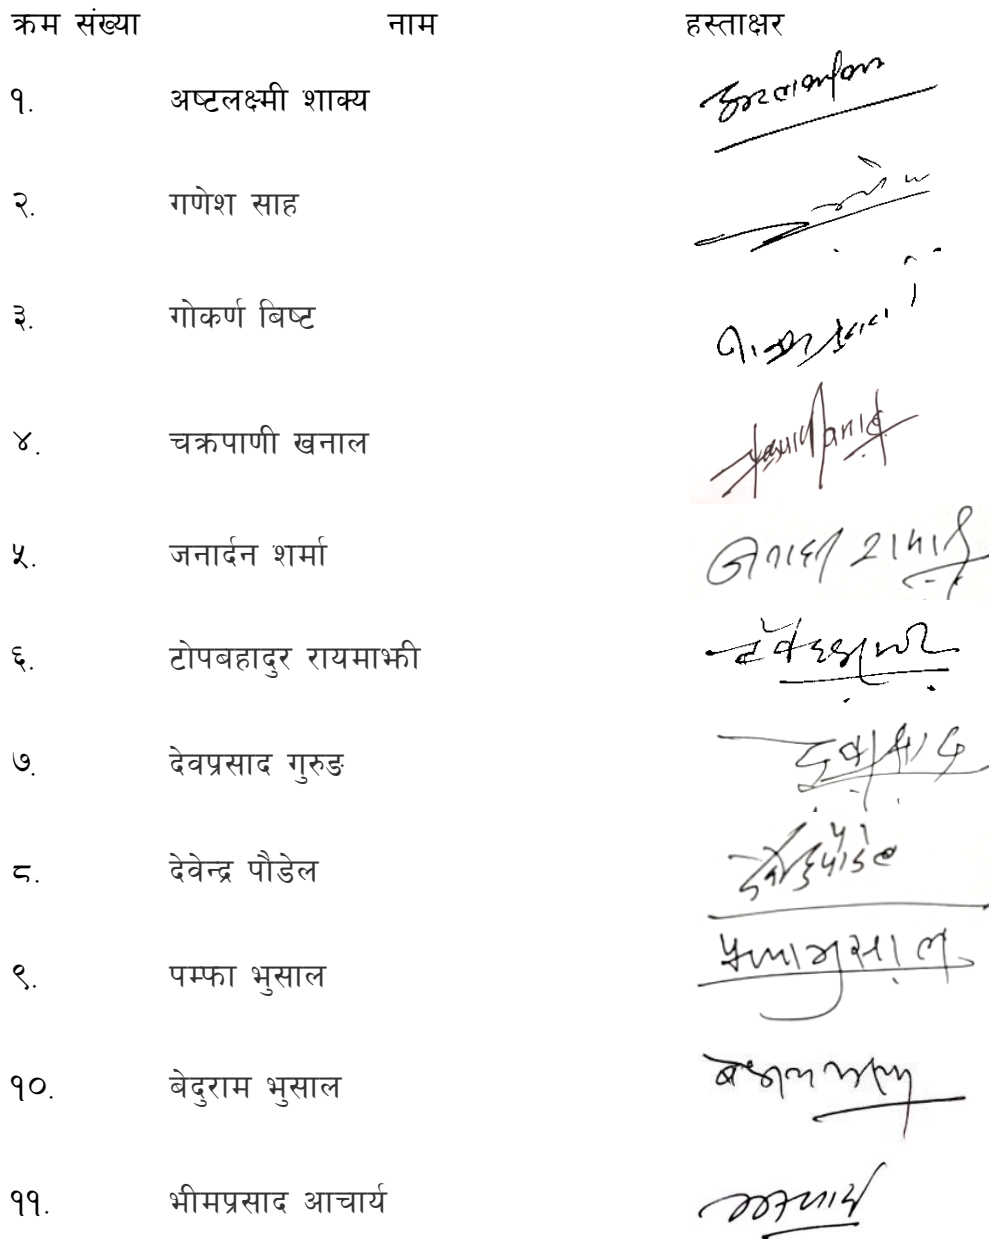 क्रम संख्या नाम हस्ताक्षर
१. अष्टलक्ष्मी शाक्य
२. गणेश साह
३. गोकर्ण बिष्ट
४. चक्रपाणी खनाल
५. जनार्दन शर्मा
६. टोपबहादुर रायमाझी
७. देवप्रसाद गुरुङ
८. देवेन्द्र पौडेल
९. पम्फा भुसाल
१०. बेदुराम भुसाल
११. भीमप्रसाद आचार्य